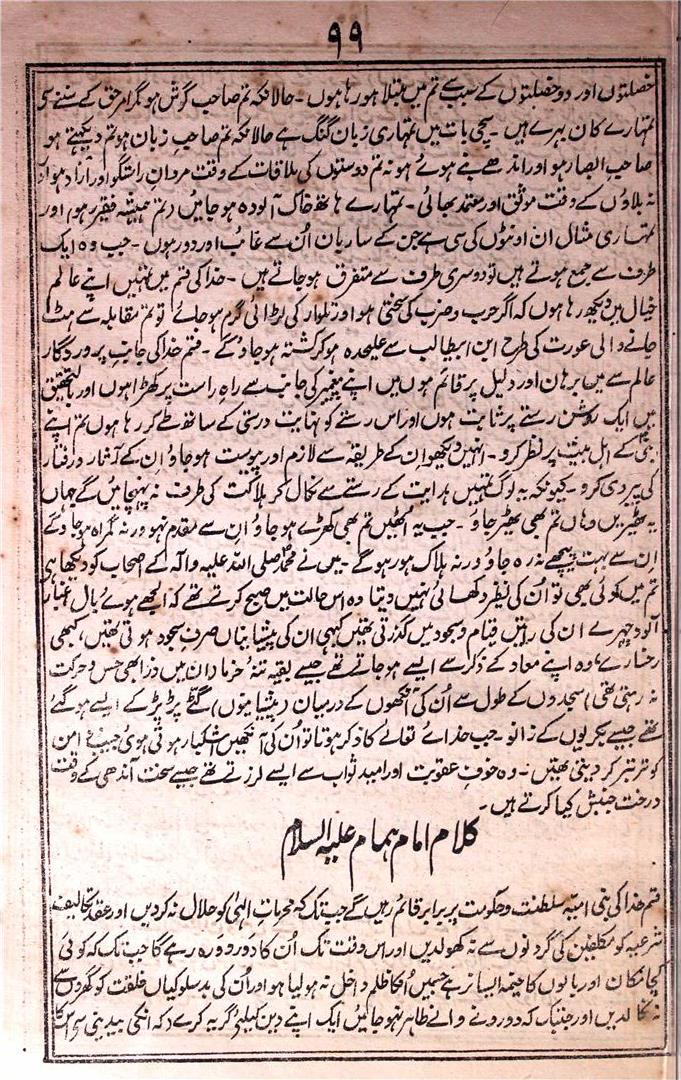 ۹۹
خصلتوں اور دو خصلتوں کے سبب سے تم میں مبتلا ہو رہا ہوں ۔ حالانکہ تم صاحب گوش ہو مگر امر حق کے سننے سے
تمہارے کان بہرے ہیں ۔ سچی بات میں تمہاری زبان گنگ ہے حالانکہ تم صاحب زبان ہو تم دیکھتے ہو
صاحب ابصار ہو اور اندھے بنے ہوئے ہو نہ تم دوستوں کی ملاقات کے وقت مردان راستگو اور آزاد ہو اور
نہ بلاؤں کے وقت موثق اور معتمد بھائی ۔ تمہارے ہاتھ خاک آلودہ ہو جائیں (تم ہمیشہ فقیر رہو) اور
تمہاری مثال ان اونٹوں کی سی ہے جن کے ساربان اُن سے غائب اور دور ہوں ۔ جب وہ ایک
طرف سے جمع ہوتے ہیں تو دوسری طرف سے متفرق ہو جاتے ہیں ۔ خدا کی قسم میں تمہیں اپنے عالم
خیال میں دیکھ رہا ہوں کہ اگر حرب و ضرب کی سختی ہو اور تلوار کی لڑائی گرم ہو جائے تو تم مقابلہ سے ہٹ
جانے والی عورت کی طرح ابن ابیطالب سے علیحدہ ہو کر کشتہ ہو جاؤ گے ۔ قسم خدا کی جانب پروردگار
عالم سے میں برہان اور دلیل پر قائم ہوں میں اپنے پیغمبر کی جانب سے راہ راست پر کھڑا ہوں اور بالتحقیق
میں ایک روشن رستے پر ثابت ہوں اور اس رستے کو نہایت درستی کے ساتھ طے کر رہا ہوں تم اپنے
نبی کے اہل بیت پر نظر کرو ۔ انہیں دیکھو ان کے طریقہ سے لازم اور پیوست ہو جاؤ ان کے آثار و رفتار
کی پیروی کرو ۔ کیونکہ یہ لوگ تمہیں ہدایت کے رستے سے نکال کر ہلاکت کی طرف نہ پہنچائیں گے جہاں
یہ ٹھیریں وہاں تم بھی ٹھیر جاؤ ۔ جب یہ اٹھیں تم بھی کھڑے ہو جاؤ ان سے مقدم نہو ورنہ گمراہ ہو جاؤ گے
ان سے بہت پیچھے نہ رہ جاؤ ورنہ ہلاک ہو رہو گے ۔ میں نے محمد صلی اللہ علیہ وآلہ کے اصحاب کو دیکھا ہے
تم میں کوئی بھی تو اُن کی نظیر دکھائی نہیں دیتا وہ اس حالت میں صبح کرتے تھے کہ الجھے ہوئے بال غبار
آلود چہرے ان کی راتیں قیام و سجود میں گذرتی تھیں کبھی ان کی پیشانیاں صرف سجود ہوتی تھیں، کبھی
رخسارے، وہ اپنے معاد کے ذکر سے ایسے ہو جاتے تھے جیسے بقیہ تنۂ خرما (ان میں ذرا بھی حس و حرکت
نہ رہتی تھی) سجدوں کے طول سے اُن کی آنکھوں کے درمیان (پیشانیوں) گٹے پڑ پڑ کے ایسے ہو گئے
تھے جیسے بکریوں کے زانو ۔ جب خدائے تعالےٰ کا ذکر ہوتا تو اُن کی آنکھیں اشکبار ہوتی ہوئی جیب و دامن
کو تر بتر کر دیتی تھیں ۔ وہ خوف عقوبت اور امید ثواب سے ایسے لرزتے تھے جیسے سخت آندھی کے وقت
درخت جنبش کیا کرتے ہیں ۔
کلام امام ہمام علیہ السلام
قسم خدا کی بنی امیہ سلطنت و حکومت پر برابر قائم رہیں گے جب تک کہ محرمات الٰہی کو حلال نہ کر دیں اور عقد تکالیف
شرعیہ کو مکلفین کی گردنوں سے نہ کھولدیں اور اس وقت تک اُن کا دور دورہ رہے گا جب تک کہ کوئی
کچا مکان اور بالوں کا خیمہ ایسا نہ رہے جسمیں اُنکا ظلم داخل نہ ہو لیا ہو اور اُن کی بدسلوکیاں خلقت کو گھروں سے
نہ نکالدیں اور جبتک کہ دو رونے والے ظاہر نہو جائیں ایک اپنے دین کیلئے گریہ کرے (کہ انکی بیدینی سے